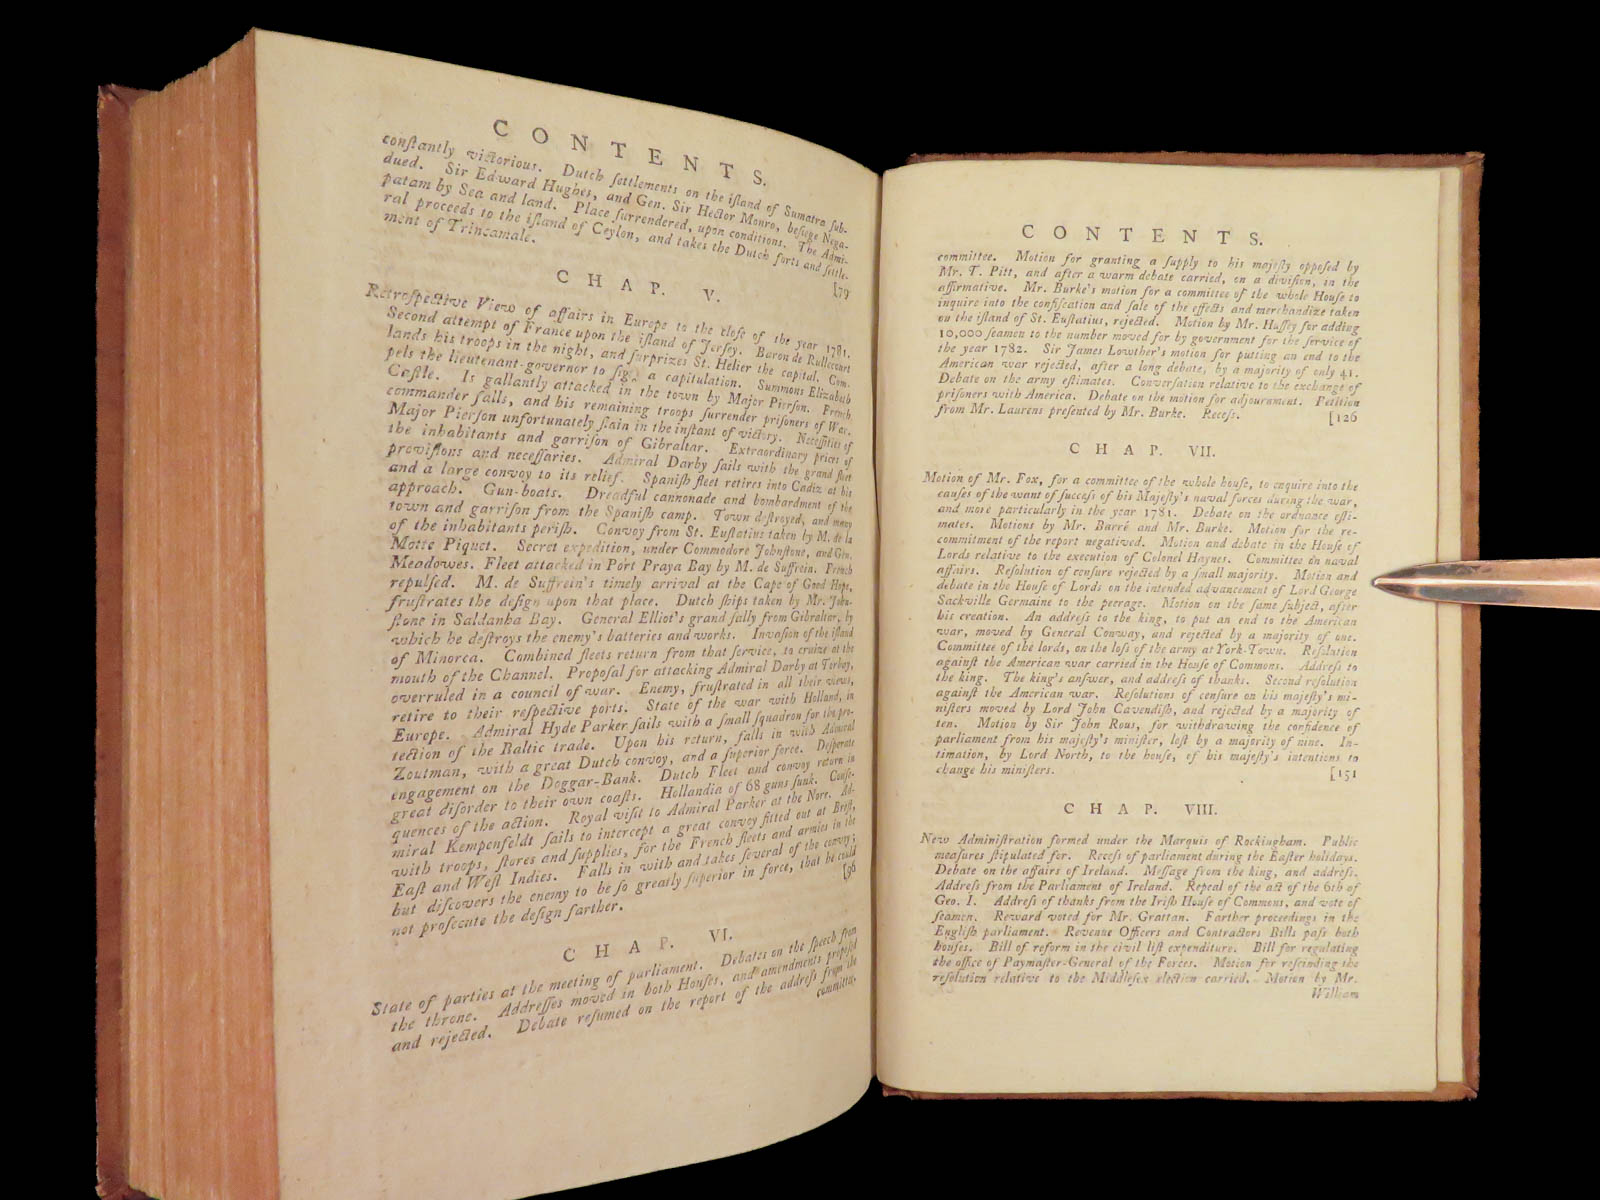 CONTENTS.
conſtantly victorious. Dutch ſettlements on the iſland of Sumatra ſub-
dued. Sir Edward Hughes, and Gen. Sir Hector Monro, beſiege Nega-
patam by Sea and land. Place ſurrendered, upon conditions. The Admi-
ral proceeds to the iſland of Ceylon, and takes the Dutch forts and ſettle-
ment of Trincamale. [79
CHAP. V.
Retroſpective View of affairs in Europe to the cloſe of the year 1781.
Second attempt of France upon the iſland of Jerſey. Baron de Rullecourt
lands his troops in the night, and ſurprizes St. Helier the capital. Com-
pels the lieutenant-governor to ſign a capitulation. Summons Elizabeth
Caſtle. Is gallantly attacked in the town by Major Pierſon. French
commander falls, and his remaining troops ſurrender priſoners of War.
Major Pierſon unfortunately ſlain in the inſtant of victory. Neceſſities of
the inhabitants and garriſon of Gibraltar. Extraordinary prices of
proviſions and neceſſaries. Admiral Darby ſails with the grand fleet
and a large convoy to its relief. Spaniſh fleet retires into Cadiz at his
approach. Gun-boats. Dreadful cannonade and bombardment of the
town and garriſon from the Spaniſh camp. Town deſtroyed, and many
of the inhabitants periſh. Convoy from St. Euſtatius taken by M. de la
Motte Piquet. Secret expedition, under Commodore Johnſtone, and Gen.
Meadowes. Fleet attacked in Port Praya Bay by M. de Suffrein. French
repulſed. M. de Suffrein's timely arrival at the Cape of Good Hope,
fruſtrates the deſign upon that place. Dutch ſhips taken by Mr. John-
ſtone in Saldanha Bay. General Elliot's grand ſally from Gibraltar, by
which he deſtroys the enemy's batteries and works. Invaſion of the iſland
of Minorca. Combined fleets return from that ſervice, to cruize at the
mouth of the Channel. Propoſal for attacking Admiral Darby at Torbay,
overruled in a council of war. Enemy, fruſtrated in all their views,
retire to their reſpective ports. State of the war with Holland, in
Europe. Admiral Hyde Parker ſails with a ſmall ſquadron for the pro-
tection of the Baltic trade. Upon his return, falls in with Admiral
Zoutman, with a great Dutch convoy, and a ſuperior force. Deſperate
engagement on the Doggar-Bank. Dutch Fleet and convoy return in
great diſorder to their own coaſts. Hollandia of 68 guns ſunk. Conſe-
quences of the action. Royal viſit to Admiral Parker at the Nore. Ad-
miral Kempenfeldt ſails to intercept a great convoy fitted out at Breſt,
with troops, ſtores and ſupplies, for the French fleets and armies in the
Eaſt and Weſt Indies. Falls in with and takes ſeveral of the convoy;
but diſcovers the enemy to be ſo greatly ſuperior in force, that he could
not proſecute the deſign farther. [96
CHAP. VI.
State of parties at the meeting of parliament. Debates on the ſpeech from
the throne. Addreſſes moved in both Houſes, and amendments propoſed
and rejected. Debate reſumed on the report of the addreſs from the
committee.
CONTENTS.
committee. Motion for granting a ſupply to his majeſty oppoſed by
Mr. T. Pitt, and after a warm debate carried, on a diviſion, in the
affirmative. Mr. Burke's motion for a committee of the whole Houſe to
inquire into the confiſcation and ſale of the effects and merchandize taken
on the iſland of St. Euſtatius, rejected. Motion by Mr. Huſſey for adding
10,000 ſeamen to the number moved for by government for the ſervice of
the year 1782. Sir James Lowther's motion for putting an end to the
American war rejected, after a long debate, by a majority of only 41.
Debate on the army eſtimates. Converſation relative to the exchange of
priſoners with America. Debate on the motion for adjournment. Petition
from Mr. Laurens preſented by Mr. Burke. Receſs. [126
CHAP. VII.
Motion of Mr. Fox, for a committee of the whole houſe, to enquire into the
cauſes of the want of ſucceſs of his Majeſty's naval forces during the war,
and more particularly in the year 1781. Debate on the ordnance eſti-
mates. Motions by Mr. Barré and Mr. Burke. Motion for the re-
commitment of the report negatived. Motion and debate in the Houſe of
Lords relative to the execution of Colonel Haynes. Committee on naval
affairs. Reſolution of cenſure rejected by a ſmall majority. Motion and
debate in the Houſe of Lords on the intended advancement of Lord George
Sackville Germaine to the peerage. Motion on the ſame ſubject, after
his creation. An addreſs to the king, to put an end to the American
war, moved by General Conway, and rejected by a majority of one.
Committee of the lords, on the loſs of the army at York-Town. Reſolution
againſt the American war carried in the Houſe of Commons. Addreſs to
the king. The king's anſwer, and addreſs of thanks. Second reſolution
againſt the American war. Reſolutions of cenſure on his majeſty's mi-
niſters moved by Lord John Cavendiſh, and rejected by a majority of
ten. Motion by Sir John Rous, for withdrawing the confidence of
parliament from his majeſty's miniſter, loſt by a majority of nine. In-
timation, by Lord North, to the houſe, of his majeſty's intentions to
change his miniſters. [151
CHAP. VIII.
New Adminiſtration formed under the Marquis of Rockingham. Public
meaſures ſtipulated for. Receſs of parliament during the Eaſter holidays.
Debate on the affairs of Ireland. Meſſage from the king, and addreſs.
Addreſs from the Parliament of Ireland. Repeal of the act of the 6th of
Geo. I. Addreſs of thanks from the Iriſh Houſe of Commons, and vote of
ſeamen. Reward voted for Mr. Grattan. Farther proceedings in the
Engliſh parliament. Revenue Officers and Contractors Bills paſs both
houſes. Bill of reform in the civil liſt expenditure. Bill for regulating
the office of Paymaſter-General of the Forces. Motion for reſcinding the
reſolution relative to the Middleſex election carried. Motion by Mr.
William